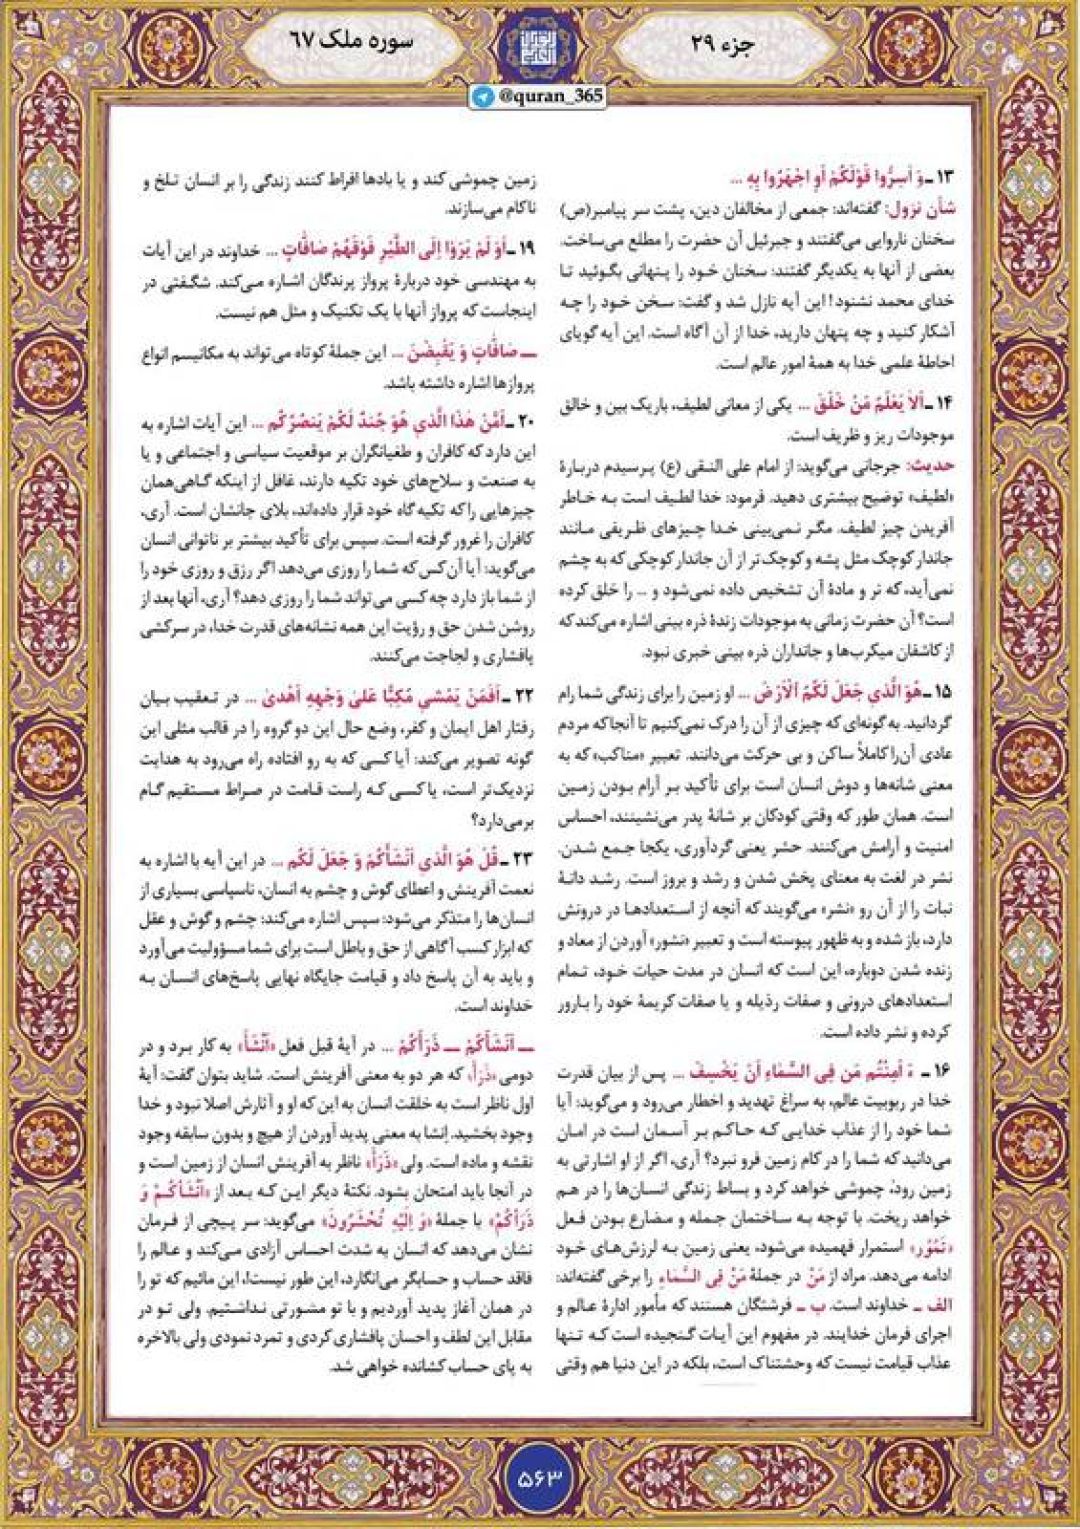 جزء ۲۹
سوره ملک ۶۷
@quran_365
۱۳ ـ وَ اَسِرُّوا قَوْلَكُمْ اَوِ اجْهَرُوا بِهِ ...
شأن نزول: گفته‌اند: جمعی از مخالفان دین، پشت سر پیامبر(ص)
سخنان ناروایی می‌گفتند و جبرئیل آن حضرت را مطلع می‌ساخت.
بعضی از آنها به یکدیگر گفتند: سخنان خود را پنهانی بگوئید تا
خدای محمد نشنود! این آیه نازل شد و گفت: سخن خود را چه
آشکار کنید و چه پنهان دارید، خدا از آن آگاه است. این آیه گویای
احاطهٔ علمی خدا به همهٔ امور عالم است.
۱۴ ـ اَلاَ يَعْلَمُ مَنْ خَلَقَ ... یکی از معانی لطیف، باریک بین و خالق
موجودات ریز و ظریف است.
حدیث: جرجانی می‌گوید: از امام علی النقی (ع) پرسیدم دربارهٔ
«لطیف» توضیح بیشتری دهید. فرمود: خدا لطیف است به خاطر
آفریدن چیز لطیف. مگر نمی‌بینی خدا چیزهای ظریفی مانند
جاندار کوچک مثل پشه و کوچک‌تر از آن جاندار کوچکی که به چشم
نمی‌آید، که نر و مادهٔ آن تشخیص داده نمی‌شود و ... را خلق کرده
است؟ آن حضرت زمانی به موجودات زندهٔ ذره بینی اشاره می‌کند که
از کاشفان میکرب‌ها و جانداران ذره بینی خبری نبود.
۱۵ ـ هُوَ الَّذي جَعَلَ لَكُمُ الْاَرْضَ ... او زمین را برای زندگی شما رام
گردانید. به گونه‌ای که چیزی از آن را درک نمی‌کنیم تا آنجا که مردم
عادی آن را کاملاً ساکن و بی حرکت می‌دانند. تعبیر «مناکب» که به
معنی شانه‌ها و دوش انسان است برای تأکید بر آرام بودن زمین
است. همان طور که وقتی کودکان بر شانهٔ پدر می‌نشینند، احساس
امنیت و آرامش می‌کنند. حشر یعنی گردآوری، یکجا جمع شدن.
نشر در لغت به معنای پخش شدن و رشد و بروز است. رشد دانهٔ
نبات را از آن رو «نشر» می‌گویند که آنچه از استعدادها در درونش
دارد، باز شده و به ظهور پیوسته است و تعبیر «نشور» آوردن از معاد و
زنده شدن دوباره، این است که انسان در مدت حیات خود، تمام
استعدادهای درونی و صفات رذیله و یا صفات کریمهٔ خود را بارور
کرده و نشر داده است.
۱۶ ـ ءَاَمِنْتُم مَن فِی السَّمَاءِ اَنْ يَخْسِفَ ... پس از بیان قدرت
خدا در ربوبیت عالم، به سراغ تهدید و اخطار می‌رود و می‌گوید: آیا
شما خود را از عذاب خدایی که حاکم بر آسمان است در امان
می‌دانید که شما را در کام زمین فرو نبرد؟ آری، اگر از او اشارتی به
زمین رود، چموشی خواهد کرد و بساط زندگی انسان‌ها را در هم
خواهد ریخت. با توجه به ساختمان جمله و مضارع بودن فعل
«تَمُوْر» استمرار فهمیده می‌شود، یعنی زمین به لرزش‌های خود
ادامه می‌دهد. مراد از مَنْ در جملهٔ مَنْ فِی السَّمَاءِ را برخی گفته‌اند:
الف ـ خداوند است. ب ـ فرشتگان هستند که مأمور ادارهٔ عالم و
اجرای فرمان خدایند. در مفهوم این آیات گنجیده است که تنها
عذاب قیامت نیست که وحشتناک است، بلکه در این دنیا هم وقتی
زمین چموشی کند و یا بادها افراط کنند زندگی را بر انسان تلخ و
ناکام می‌سازند.
۱۹ ـ اَوَ لَمْ يَرَوْا اِلَی الطَّيْرِ فَوْقَهُمْ صَافَّاتٍ ... خداوند در این آیات
به مهندسی خود دربارهٔ پرواز پرندگان اشاره می‌کند. شگفتی در
اینجاست که پرواز آنها با یک تکنیک و مثل هم نیست.
ـ صَافَّاتٍ وَ يَقْبِضْنَ ... این جملهٔ کوتاه می‌تواند به مکانیسم انواع
پروازها اشاره داشته باشد.
۲۰ ـ اَمَّنْ هَذَا الَّذي هُوَ جُندٌ لَكُمْ يَنصُرُكُم ... این آیات اشاره به
این دارد که کافران و طغیانگران بر موقعیت سیاسی و اجتماعی و یا
به صنعت و سلاح‌های خود تکیه دارند، غافل از اینکه گاهی همان
چیزهایی را که تکیه گاه خود قرار داده‌اند، بلای جانشان است. آری،
کافران را غرور گرفته است. سپس برای تأکید بیشتر بر ناتوانی انسان
می‌گوید: آیا آن کس که شما را روزی می‌دهد اگر رزق و روزی خود را
از شما باز دارد چه کسی می‌تواند شما را روزی دهد؟ آری، آنها بعد از
روشن شدن حق و رؤیت این همه نشانه‌های قدرت خدا، در سرکشی
پافشاری و لجاجت می‌کنند.
۲۲ ـ اَفَمَنْ يَمْشي مُكِبًّا عَلَىٰ وَجْهِهِ اَهْدىٰ ... در تعقیب بیان
رفتار اهل ایمان و کفر، وضع حال این دو گروه را در قالب مثلی این
گونه تصویر می‌کند: آیا کسی که به رو افتاده راه می‌رود به هدایت
نزدیک‌تر است، یا کسی که راست قامت در صراط مستقیم گام
برمی‌دارد؟
۲۳ ـ قُلْ هُوَ الَّذي اَنْشَأَكُمْ وَ جَعَلَ لَكُم ... در این آیه با اشاره به
نعمت آفرینش و اعطای گوش و چشم به انسان، ناسپاسی بسیاری از
انسان‌ها را متذکر می‌شود: سپس اشاره می‌کند: چشم و گوش و عقل
که ابزار کسب آگاهی از حق و باطل است برای شما مسؤولیت می‌آورد
و باید به آن پاسخ داد و قیامت جایگاه نهایی پاسخ‌های انسان به
خداوند است.
ـ اَنْشَأَكُمْ ـ ذَرَأَكُمْ ... در آیهٔ قبل فعل «اَنْشَأَ» به کار برد و در
دومی «ذَرَأَ» که هر دو به معنی آفرینش است. شاید بتوان گفت: آیهٔ
اول ناظر است به خلقت انسان به این که او و آثارش اصلا نبود و خدا
وجود بخشید. اِنشا به معنی پدید آوردن از هیچ و بدون سابقه وجود
نقشه و ماده است. ولی «ذَرَأَ» ناظر به آفرینش انسان از زمین است و
در آنجا باید امتحان بشود. نکتهٔ دیگر این که بعد از «اَنْشَأَكُمْ وَ
ذَرَأَكُمْ» با جملهٔ «وَ اِلَيْهِ تُحْشَرُونَ» می‌گوید: سر پیچی از فرمان
نشان می‌دهد که انسان به شدت احساس آزادی می‌کند و عالم را
فاقد حساب و حسابگر می‌انگارد، این طور نیست!، این مائیم که تو را
در همان آغاز پدید آوردیم و با تو مشورتی نداشتیم. ولی تو در
مقابل این لطف و احسان پافشاری کردی و تمرد نمودی ولی بالاخره
به پای حساب کشانده خواهی شد.
۵۶۳